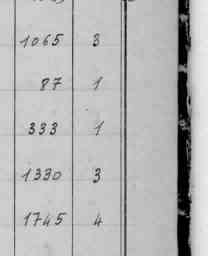 1065 3
87 1
333 1
1330 3
1745 4